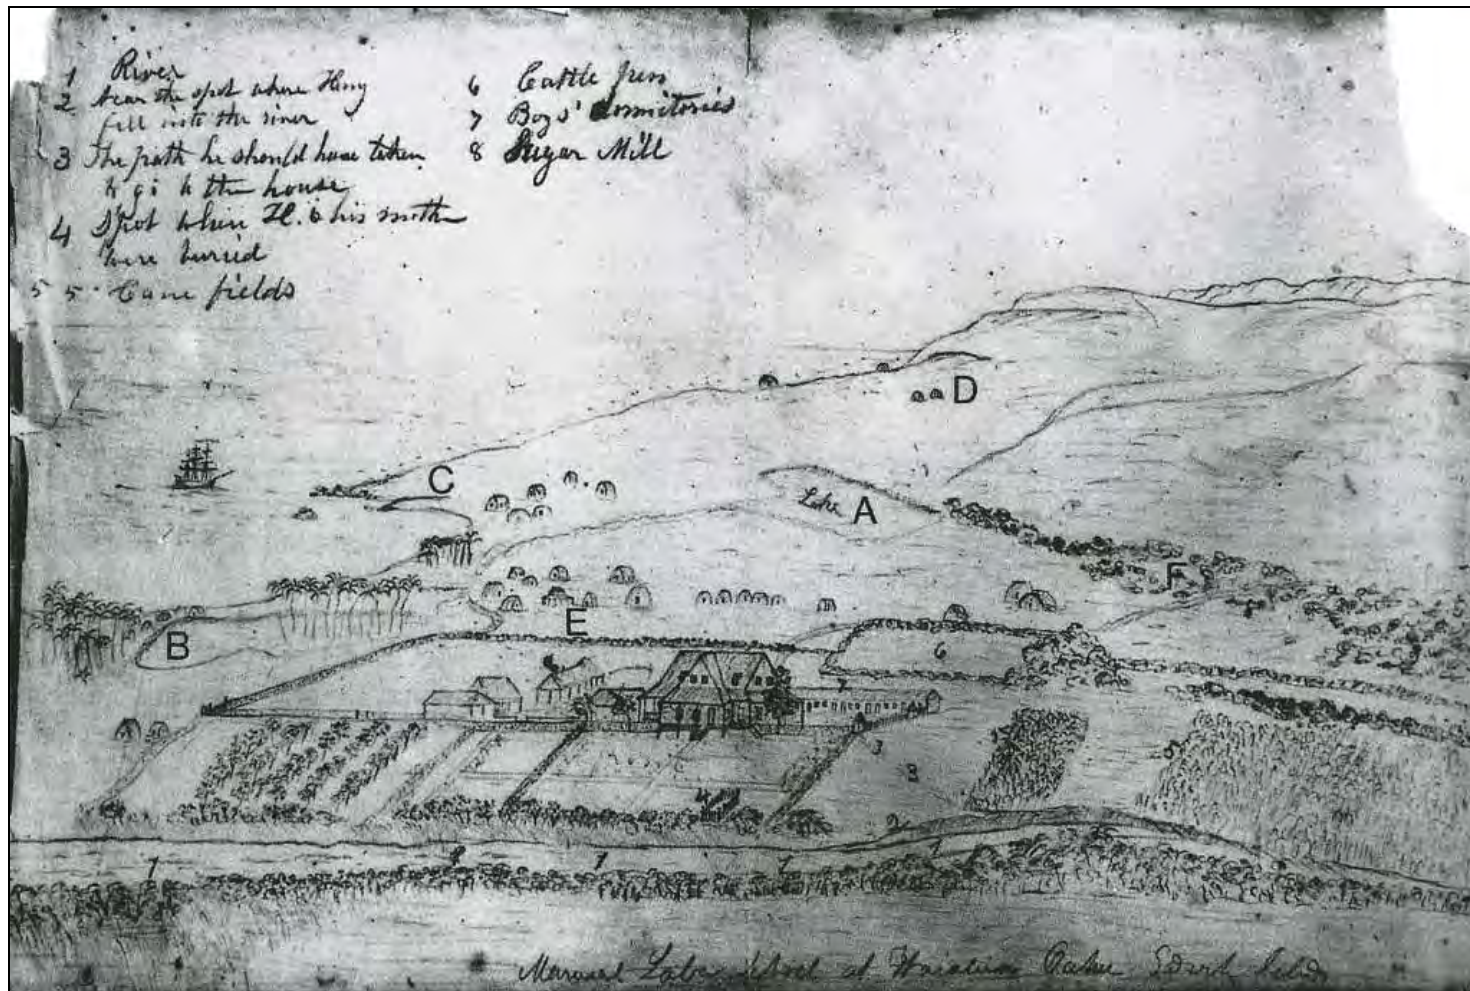 1 River
2 Near the spot where Henry
fell into the river
3 The path he should have taken
to go to the house
4 Spot where H. & his mother
were buried
5 5 Cane fields
6 Cattle pen
7 Boys' Dormitories
8 Sugar Mill
D
C
Lake A
F
E
B
6
7
3
8
5
4
2
1 1 1
Manual Labor School at Waialua Oahu